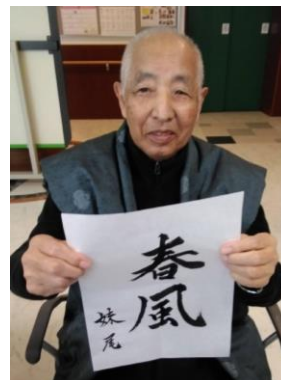 春風
妹尾